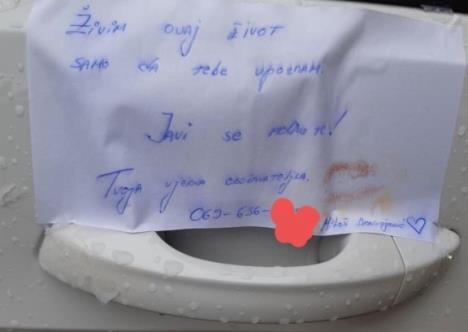 Živim ovaj život
samo da tebe upoznam.
Javi se molim te!
Tvoja vjerna obožavateljka.
069-656-
Miloš